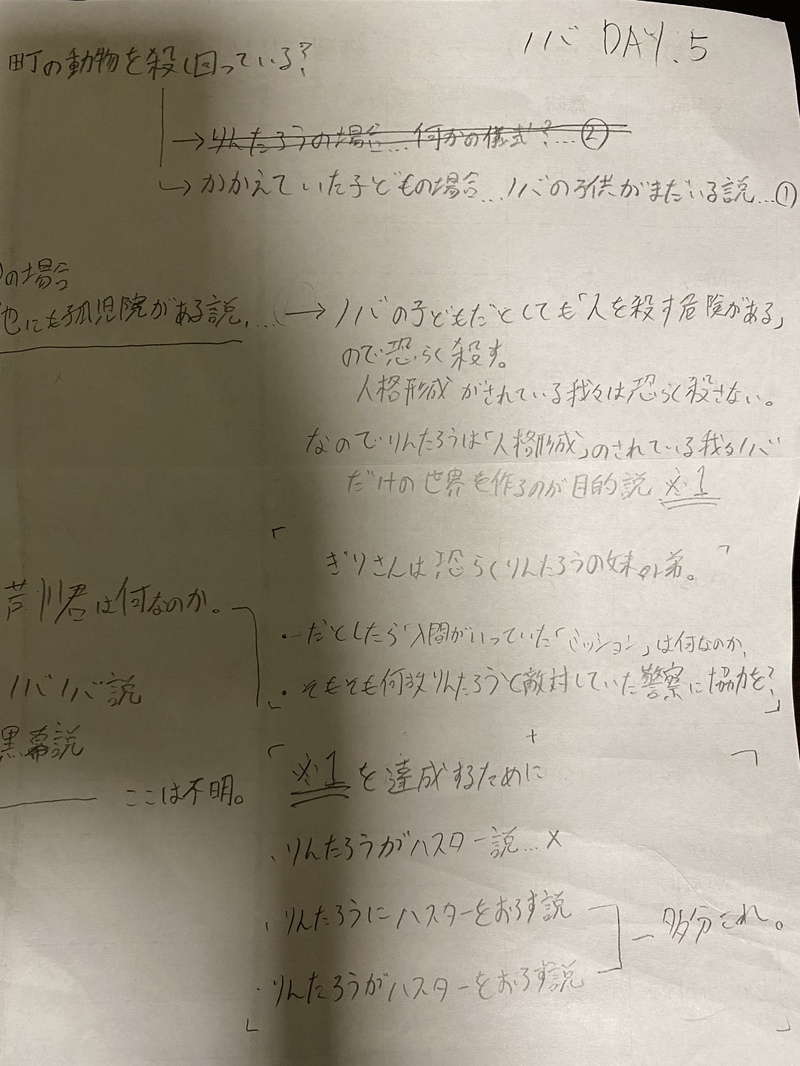 ノバ DAY.5
町の動物を殺し回っている?
→りんたろうの場合…何かの儀式?…②
→かかえていた子どもの場合…ノバの子供がまだいる説…①
の場合
他にも孤児院がある説…
→ノバの子どもだとしても「人を殺す危険がある」
ので恐らく殺す。
人格形成がされている我々は恐らく殺さない。
なのでりんたろうは「人格形成」のされている我らノバ
だけの世界を作るのが目的説 ※1
「
ぎりさんは恐らくりんたろうの妹or弟。
」
芦川君は何なのか。
・だとしたら入間がいっていた「ミッション」は何なのか、
・そもそも何故りんたろうと敵対していた警察に協力を?
ノバノバ説
黒幕説
ここは不明。
+
「※1を達成するために
・りんたろうがハスター説…×
・りんたろうにハスターをおろす説
・りんたろうがハスターをおろす説
多分これ。